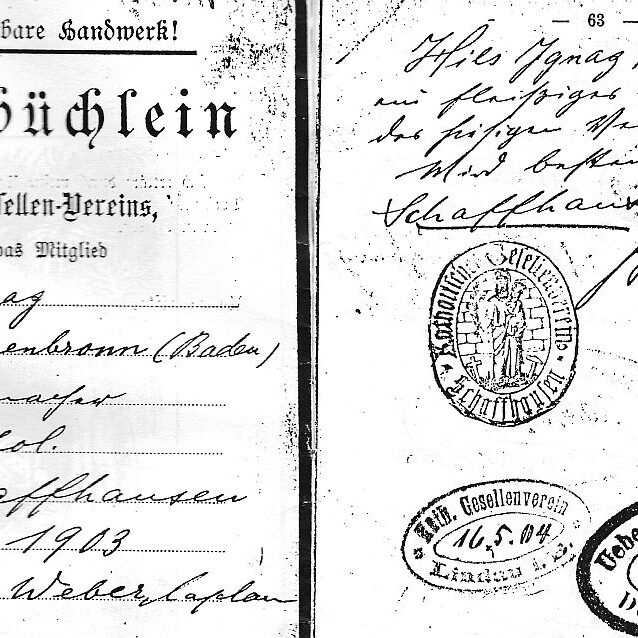 bare Handwerk!
büchlein
sellen-Vereins,
das Mitglied
ag
enbronn (Baden)
macher
ol.
affhausen
1903
Weber, Caplan
— 63
Hils Ignaz
ein fleißiges
des hiesigen Ve
wird besten
Schaffhaus
Katholischer Gesellenverein
Schaffhausen
Kath. Gesellenverein
16.5.04
Lindau i. B.
Uebe